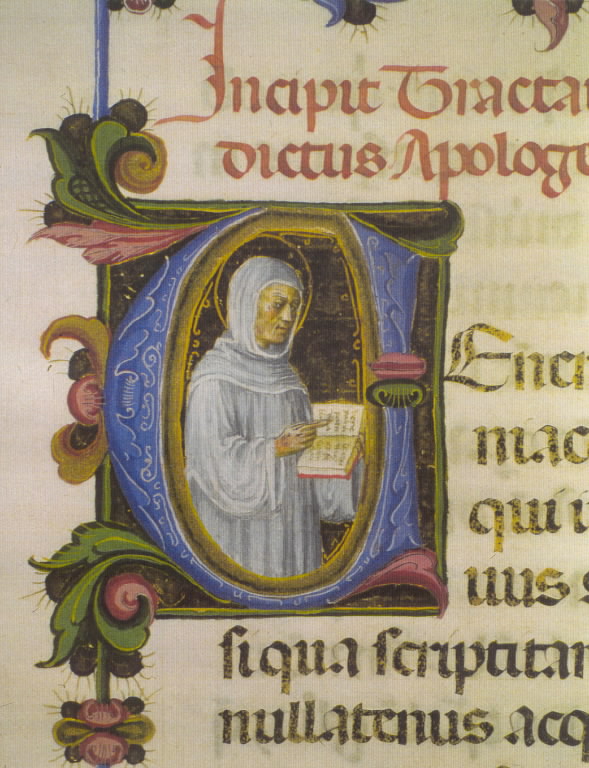 Incipit Tractat
dictus Apologe
UEner
mac
qui i
uus s
si qua scriptitar
nullatenus acq